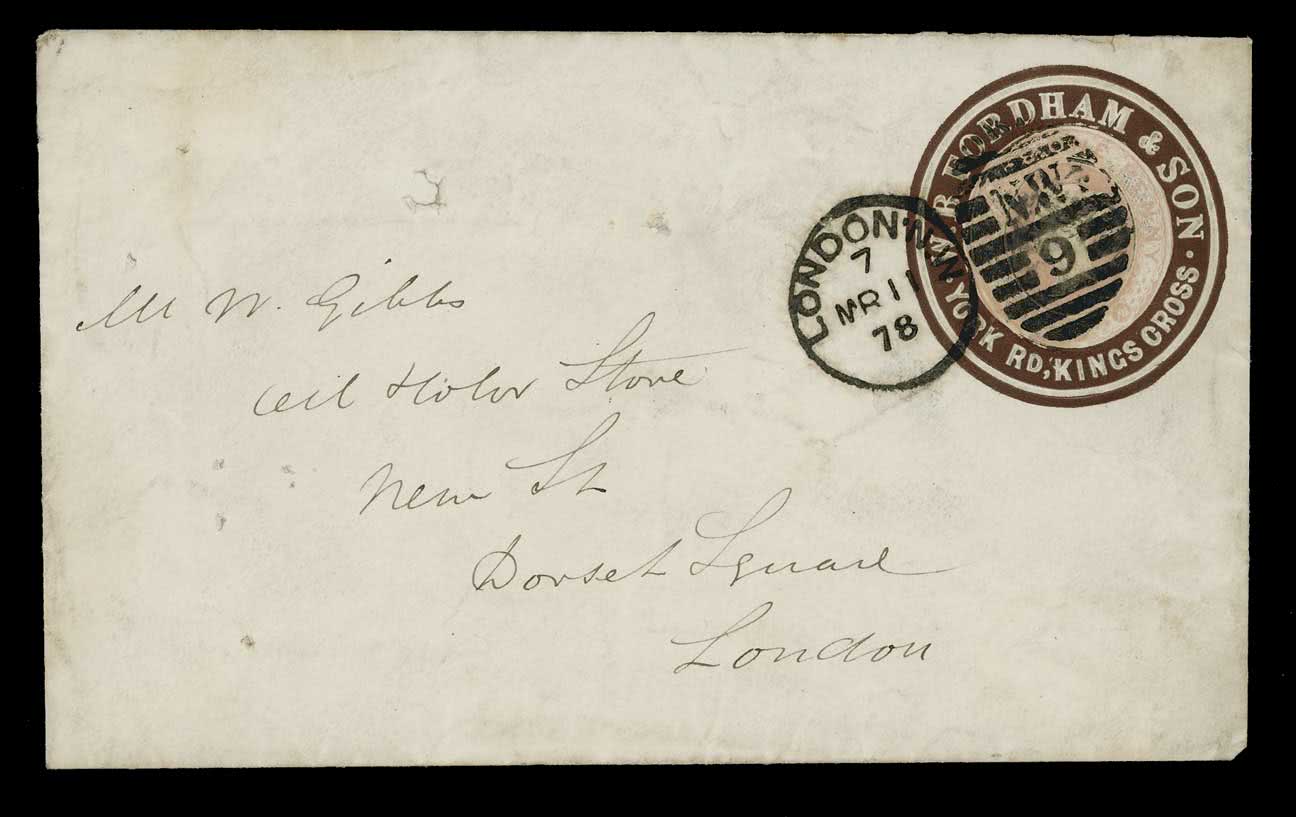 W. R. FORDHAM & SON ·
· YORK RD, KINGS CROSS ·
LONDON·N.W
7
MR 11
78
N.W
9
Mr W. Gibbs
Oil & Color Store
New St
Dorset Square
London